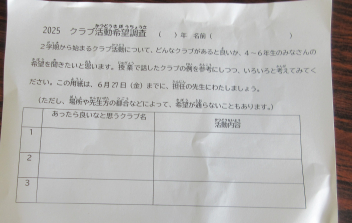 2025 クラブ活動希望調査 （ ）年 名前（ ）
2学期から始まるクラブ活動について、どんなクラブがあると良いか、4～6年生のみなさんの
希望を聞きたいと思います。授業で話したクラブの例を参考にしつつ、いろいろと考えてみてく
ださい。この用紙は、6月27日（金）までに、担任の先生にわたしましょう。
（ただし、場所や先生方の都合などによって、希望が通らないこともあります。）
あったら良いなと思うクラブ名 活動内容
1
2
3